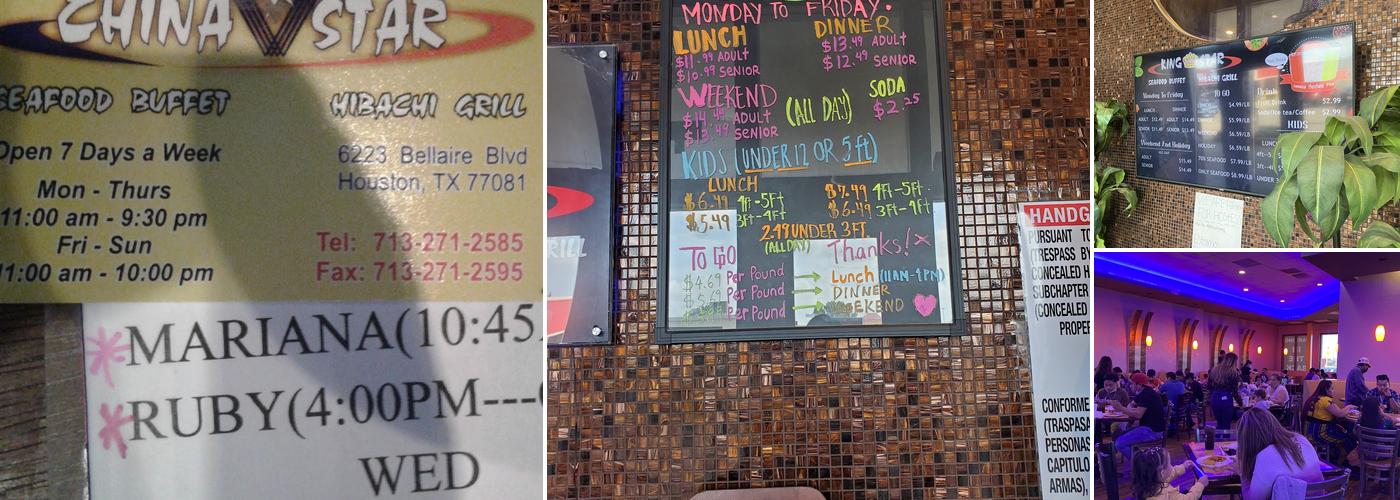 CHINA STAR
SEAFOOD BUFFET
HIBACHI GRILL
Open 7 Days a Week
Mon - Thurs
11:00 am - 9:30 pm
Fri - Sun
11:00 am - 10:00 pm
6223 Bellaire Blvd
Houston, TX 77081
Tel: 713-271-2585
Fax: 713-271-2595
*MARIANA(10:45
*RUBY(4:00PM---
WED
MONDAY TO FRIDAY.
LUNCH
$11.99 ADULT
$10.99 SENIOR
DINNER
$13.49 ADULT
$12.49 SENIOR
WEEKEND (ALL DAY)
$14.49 ADULT
$13.49 SENIOR
SODA
$2.25
KIDS (UNDER 12 OR 5 ft)
LUNCH
$6.49 4ft-5ft
$5.49 3ft-4ft
$7.49 4ft-5ft.
$6.49 3ft-4ft
2.49 UNDER 3FT.
(ALL DAY)
TO GO
Thanks! x
$4.69 Per Pound → Lunch (11AM-4PM)
Per Pound → DINNER
Per Pound → WEEKEND
GRILL
HANDG
PURSUANT TO
(TRESPASS BY
CONCEALED H
SUBCHAPTER
(CONCEALED
PROPER
CONFORME
(TRASPASA
PERSONAS
CAPITULO
ARMAS),
KING STAR
SEAFOOD BUFFET
HIBACHI GRILL
Monday To Friday
LUNCH
DINNER
ADULT
SENIOR
Weekend And Holiday
ADULT $15.49
SENIOR $14.49
TO GO
LUNCH $4.99/LB
DINNER $5.99/LB
WEEKEND $6.59/LB
HOLIDAY $6.59/LB
70% SEAFOOD $7.99/LB
ONLY SEAFOOD $8.99/LB
Drink
Fruit Drink $2.99
Soda/Ice tea/Coffee $2.99
KIDS